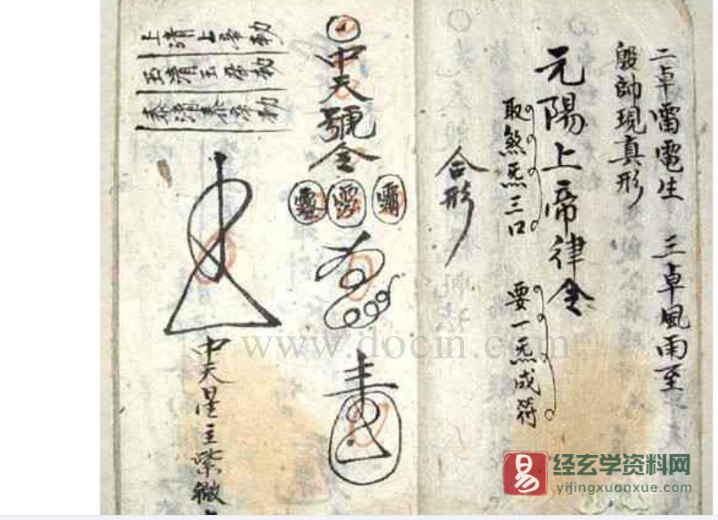 二卓雷電生　三卓風雨至
殷帥現真形
元陽上帝律令
取煞炁三口　要一炁成符
合形
中天號令
上清上帝勅
玉清玉帝勅
泰清泰帝勅
中天星主紫微
www.docin.com
易
经玄学资料网
yijingxuanxue.com